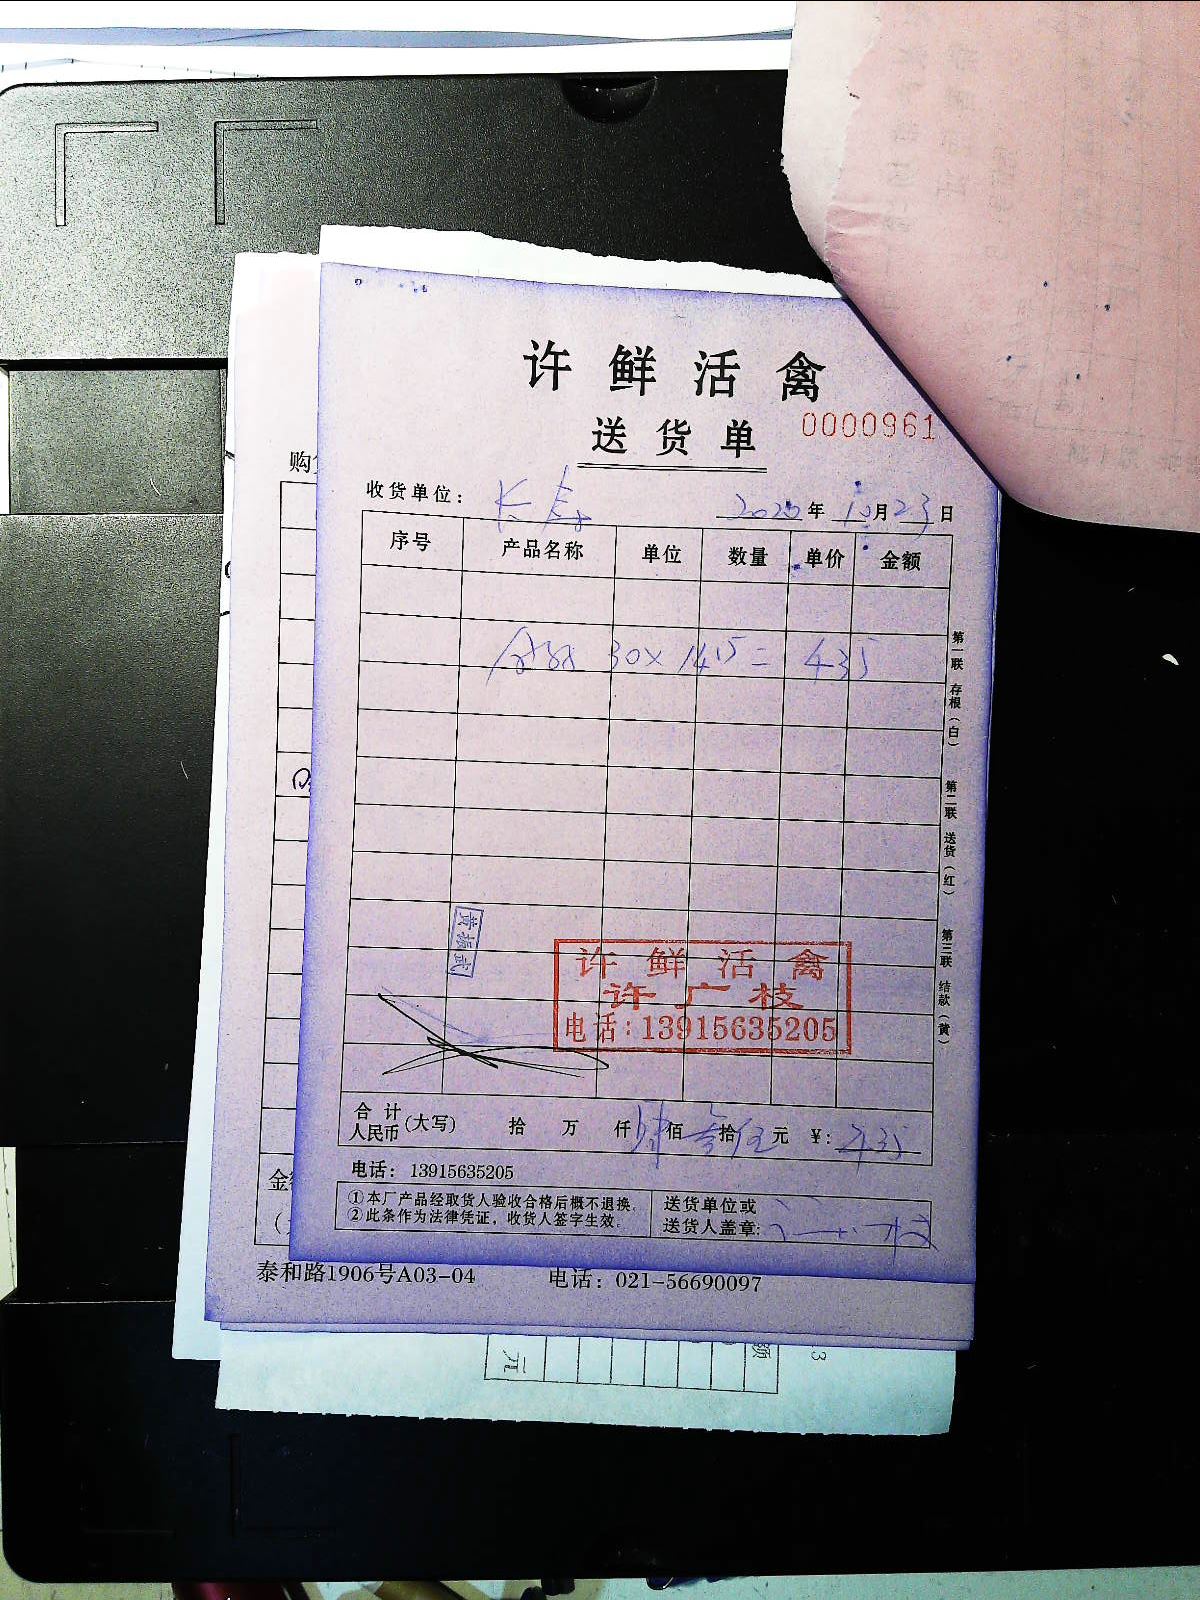 许鲜活禽
送货单
0000961
收货单位： 长寿 2020年10月23日
序号 产品名称 单位 数量 单价 金额
30×14.5=435
第一联 存根（白）
第二联 送货（红）
第三联 结款（黄）
黄振武
许鲜活禽
许广枝
电话：13915635205
合计人民币(大写) 拾 万 仟 肆佰 叁拾伍元 ¥：435
电话：13915635205
①本厂产品经取货人验收合格后概不退换。
②此条作为法律凭证，收货人签字生效。
送货单位或
送货人盖章:
购
金
泰和路1906号A03-04 电话：021-56690097
额
元
3